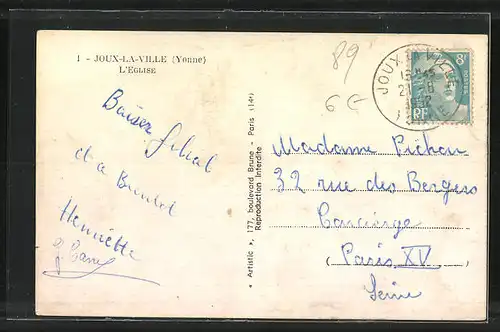 1 - JOUX-LA-VILLE (Yonne)
L'EGLISE
89
6 €
Baiser filial
et a Bientôt
Henriette
« Artistic », 177, boulevard Brune - Paris (14e)
Reproduction Interdite
JOUX
8F
RF
Madame Pichon
32 rue des Bergers
Concierge
Paris XV
Seine